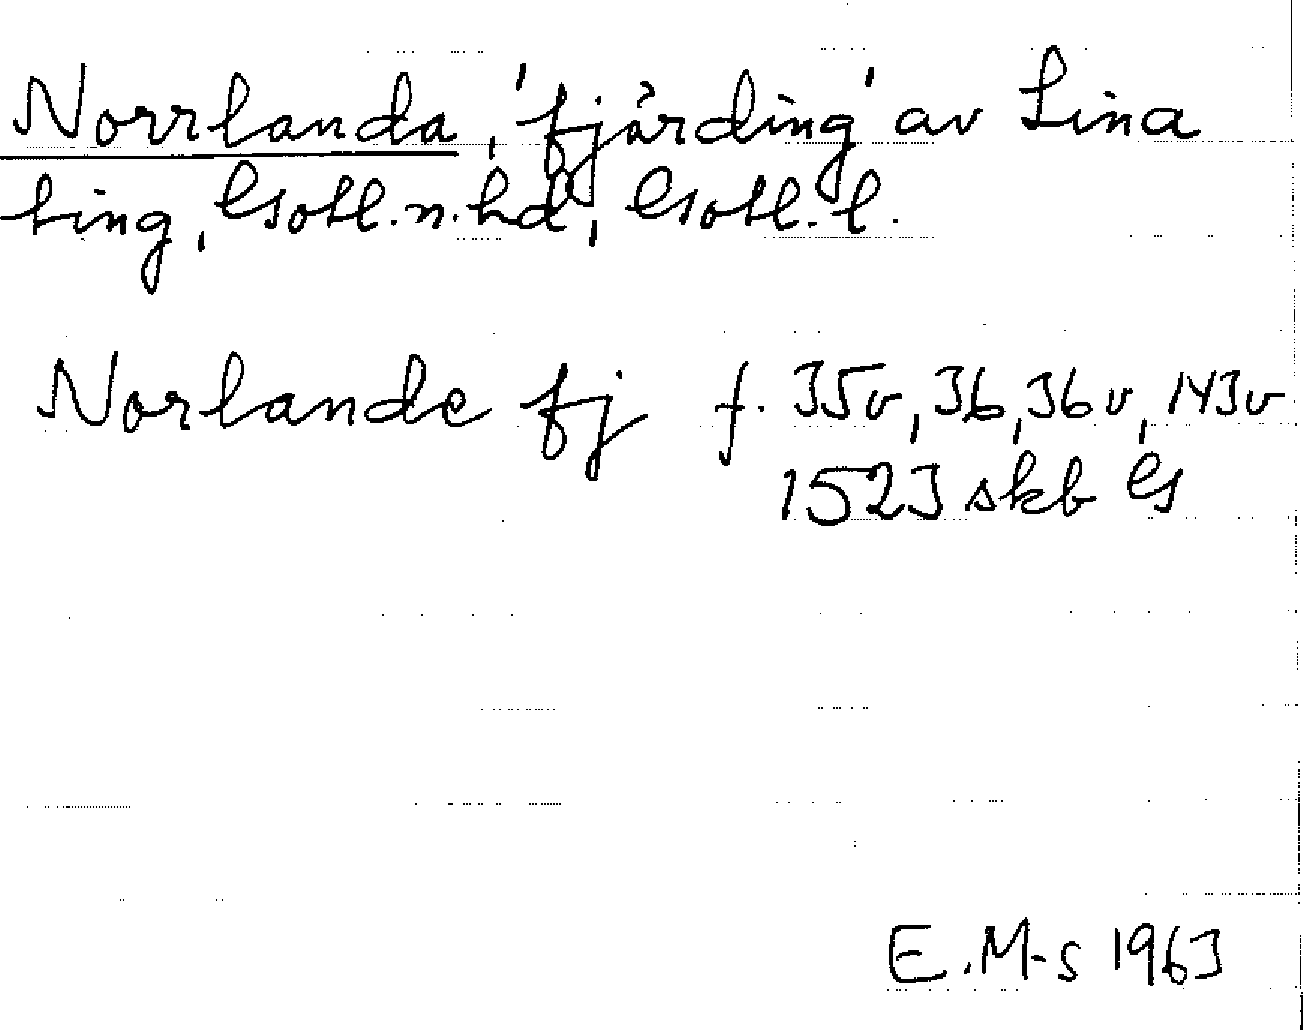 Norrlanda, 'fjärding' av Lina
ting, Gotl.n.hd, Gotl.l.
Norlande fj f. 35v, 36, 36v, 143v
1523 skb G
E.M-s 1963